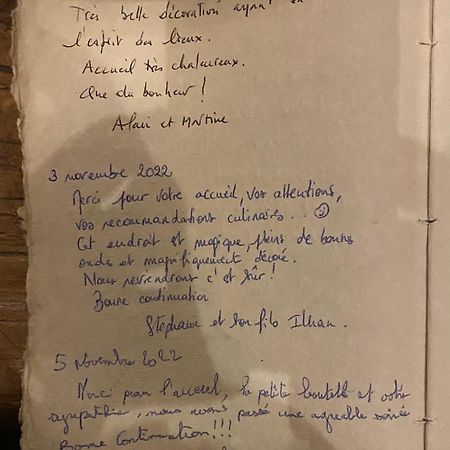 Très belle décoration ayant
l'esprit des lieux.
Accueil très chaleureux.
Que du bonheur !
Alain et Martine
3 novembre 2022
Merci pour votre accueil, vos attentions,
vos recommandations culinaires... ☺
Cet endroit est magique, pleins de bonnes
ondes et magnifiquement décoré.
Nous reviendrons c'est sûr !
Bonne continuation
Stéphanie et son fils Ilhan.
5 novembre 2022
Merci pour l'accueil, la petite bouteille et votre
sympathie, nous avons passé une agréable soirée
Bonne Continuation !!!